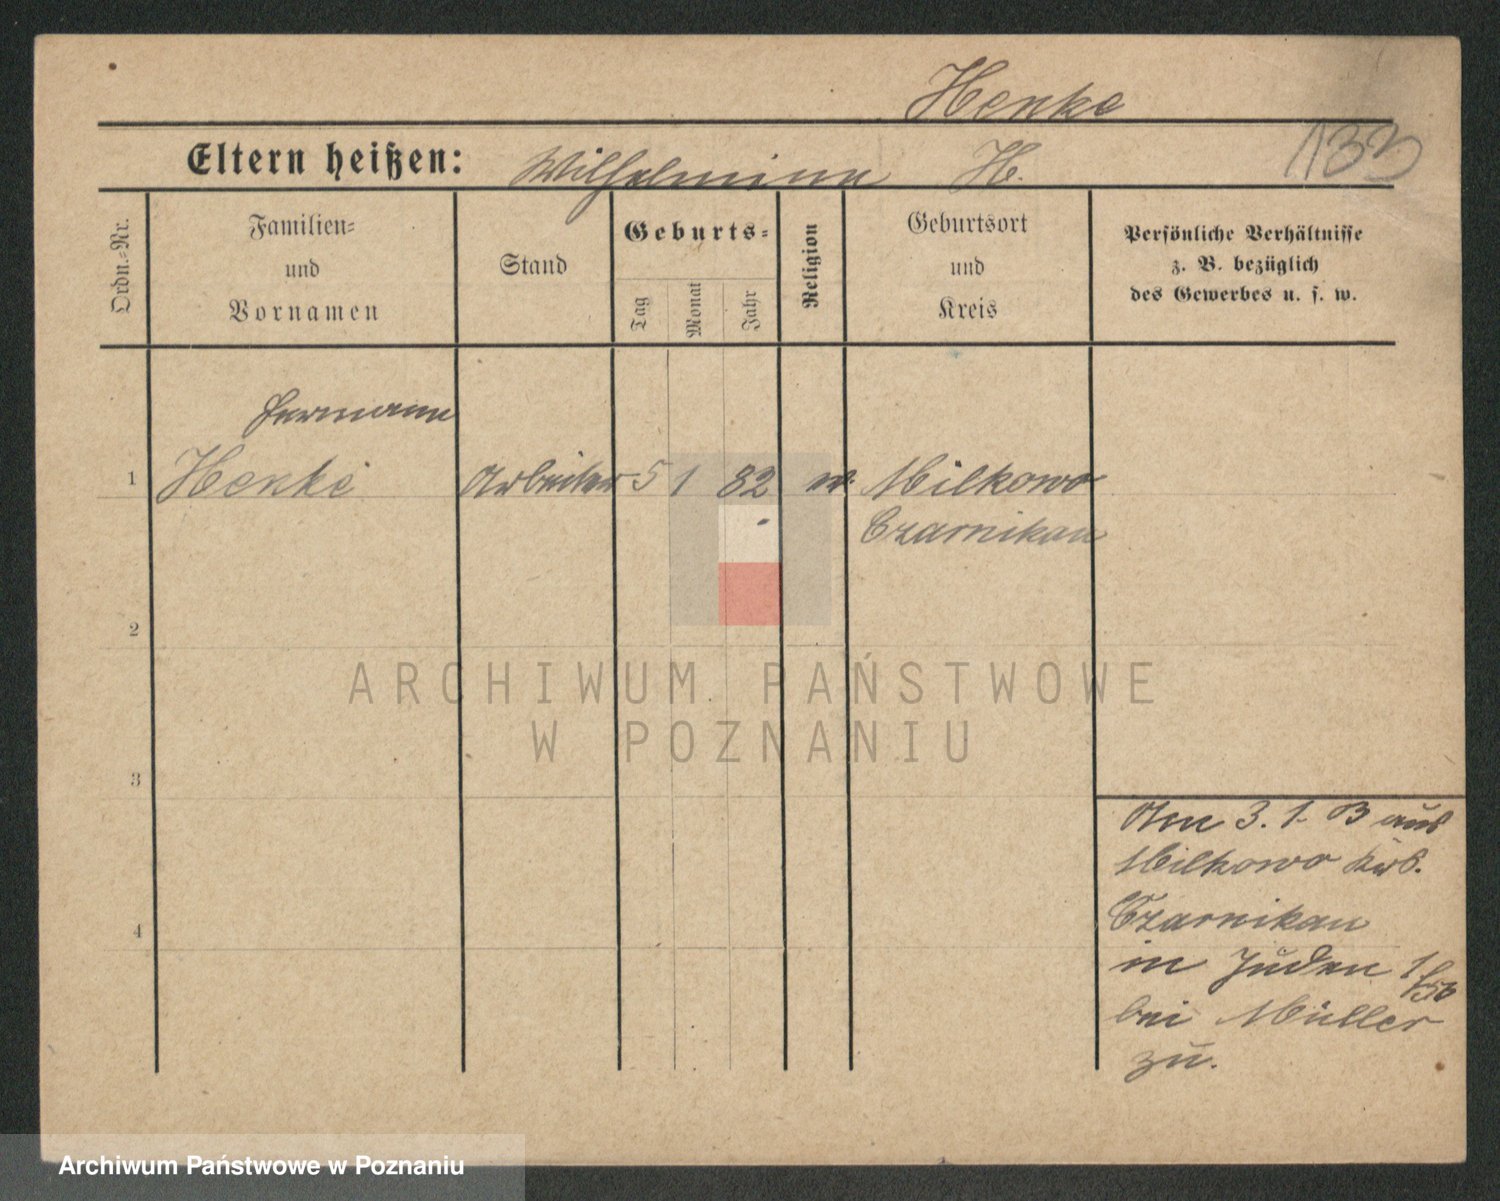 Henke
133
Eltern heißen: Wilhelmine H.
Ordn.-Nr.
Familien-
und
Vornamen
Stand
Geburts-
Tag
Monat
Jahr
Religion
Geburtsort
und
Kreis
Persönliche Verhältnisse
z. B. bezüglich
des Gewerbes u. s. w.
Hermann
1 Henke Arbeiter 5 1 82 ev. Milkowo
Czarnikau
2
3
4
Am 3. 1. 13 aus
Milkowo
Czarnikau
in Juden 1/56
bei Müller
zu.
ARCHIWUM PAŃSTWOWE
W POZNANIU
Archiwum Państwowe w Poznaniu